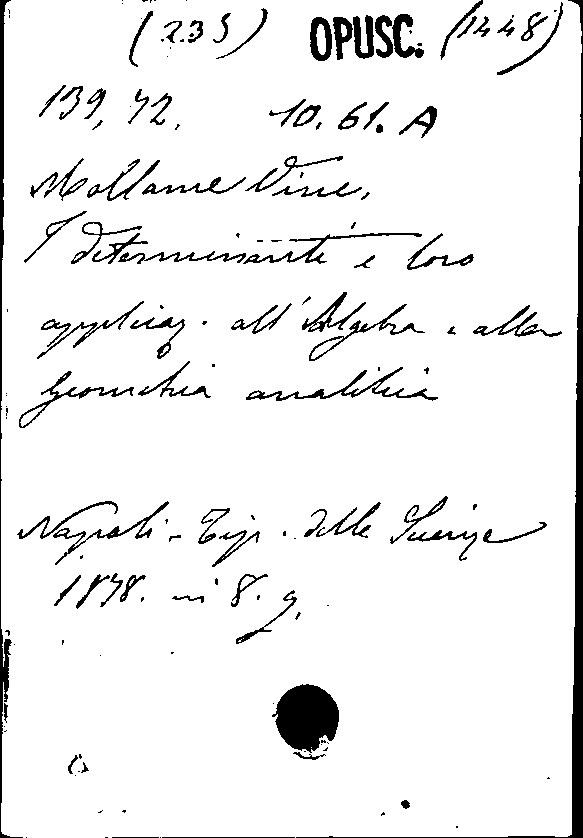 (235) OPUSC. (1448)
139, 72. 10. 61. A
Mollame Vinc.
I determinanti e loro
applicaz. all'Algebra e alla
Geometria analitica
Napoli - Tip. delle Scienze
1878. in 8. g.